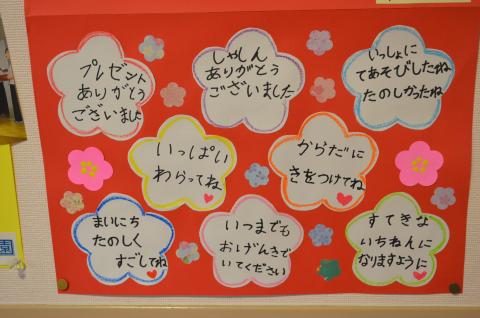 プレゼント
ありがとう
ございました
しゃしん
ありがとう
ございました
いっしょに
てあそびしたね
たのしかったね
いっぱい
わらってね
からだに
きをつけてね
まいにち
たのしく
すごしてね
いつまでも
おげんきで
いてください
すてきな
いちねんに
なりますように
園